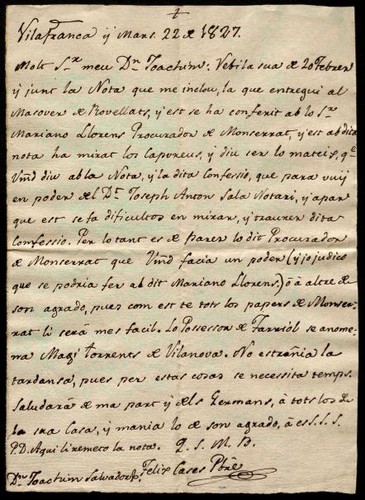 Vilafranca y Mars. 22 de 1827.
Molt Sr. meu Dn. Joachim. Vebi la sua de 20 Febrer
y junt la Nota que me inclou, la que entreguí al
Masover de Rovellats, y est se ha conferit ab lo Sr.
Mariano Llorens Procurador de Monserrat, y est ab dita
nota ha mirat los Capbreus, y diu ser lo mateix, qe.
Vmd diu ab la Nota, y la dita Confessió, que para vuy
en poder del Dr. Joseph Anton Sala Notari, y apar
que est se fa dificultos en mirar, y traurer dita
Comfessio. Per lo tant es de parer lo dit Procurador
de Monserrat que Vmd facia un poder (y jo judico
que se podria fer ab dit Mariano Llorens,) ó á altre de
son agrado, pues com est te tots los papers de Monser-
rat li será mes facil. Lo Possessor de Farriol se anome-
na Magí Torrents de Vilanova. No estrañia la
tardansa, pues per estas cosas se necessita temps.
Saludará de ma part y dels Germans, á tots los de
la sua Casa, y mania lo de son agrado, á est S.S.S.
P.D. Aqui li remeto la nota. Q. S. M. B.
Dn. Joachim Salvador. Felix Cases Pbre